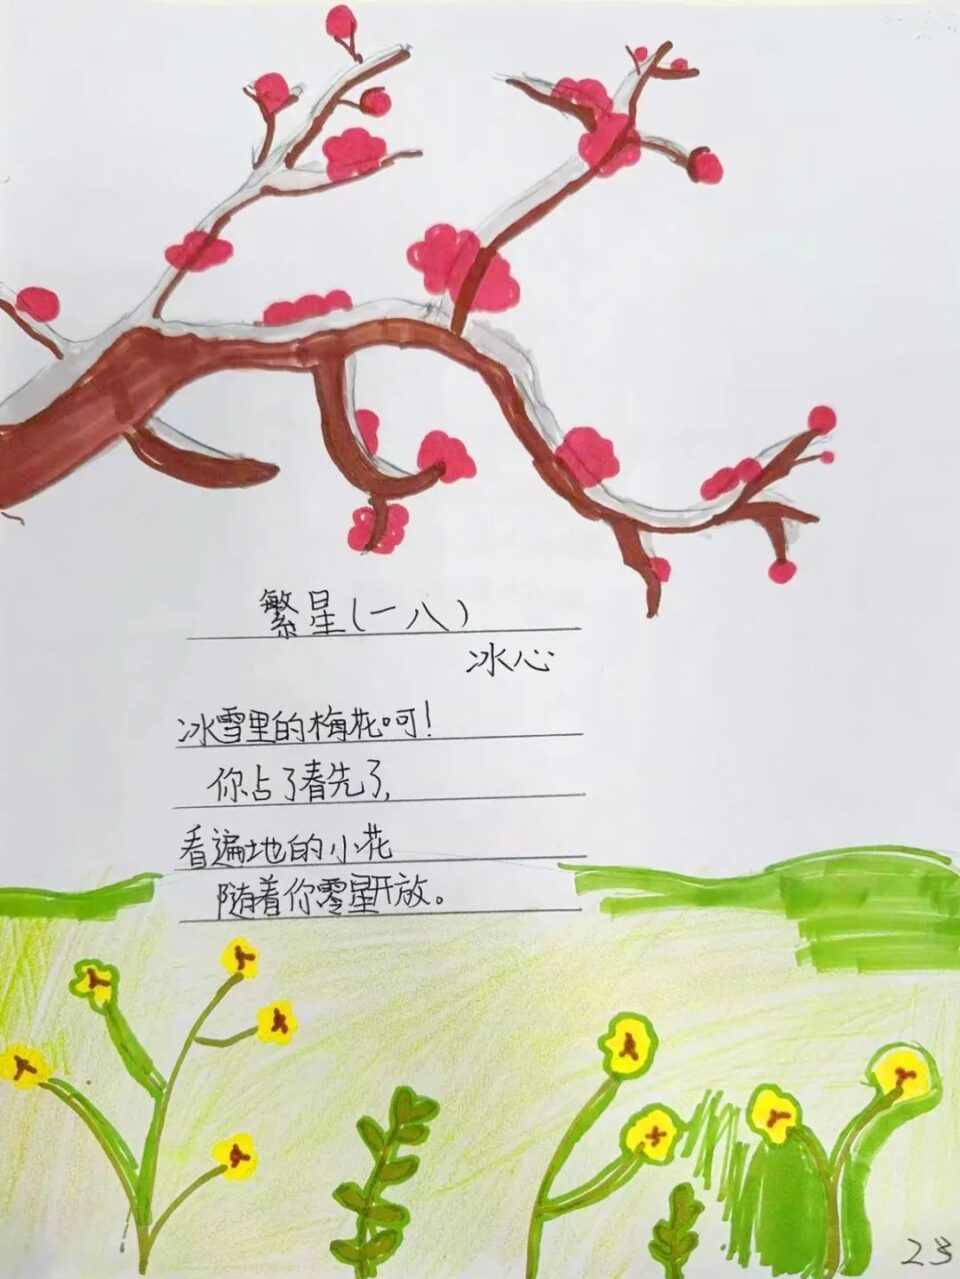 繁星(一八)
冰心
冰雪里的梅花呵!
你占了春先了,
看遍地的小花
随着你零星开放。
23